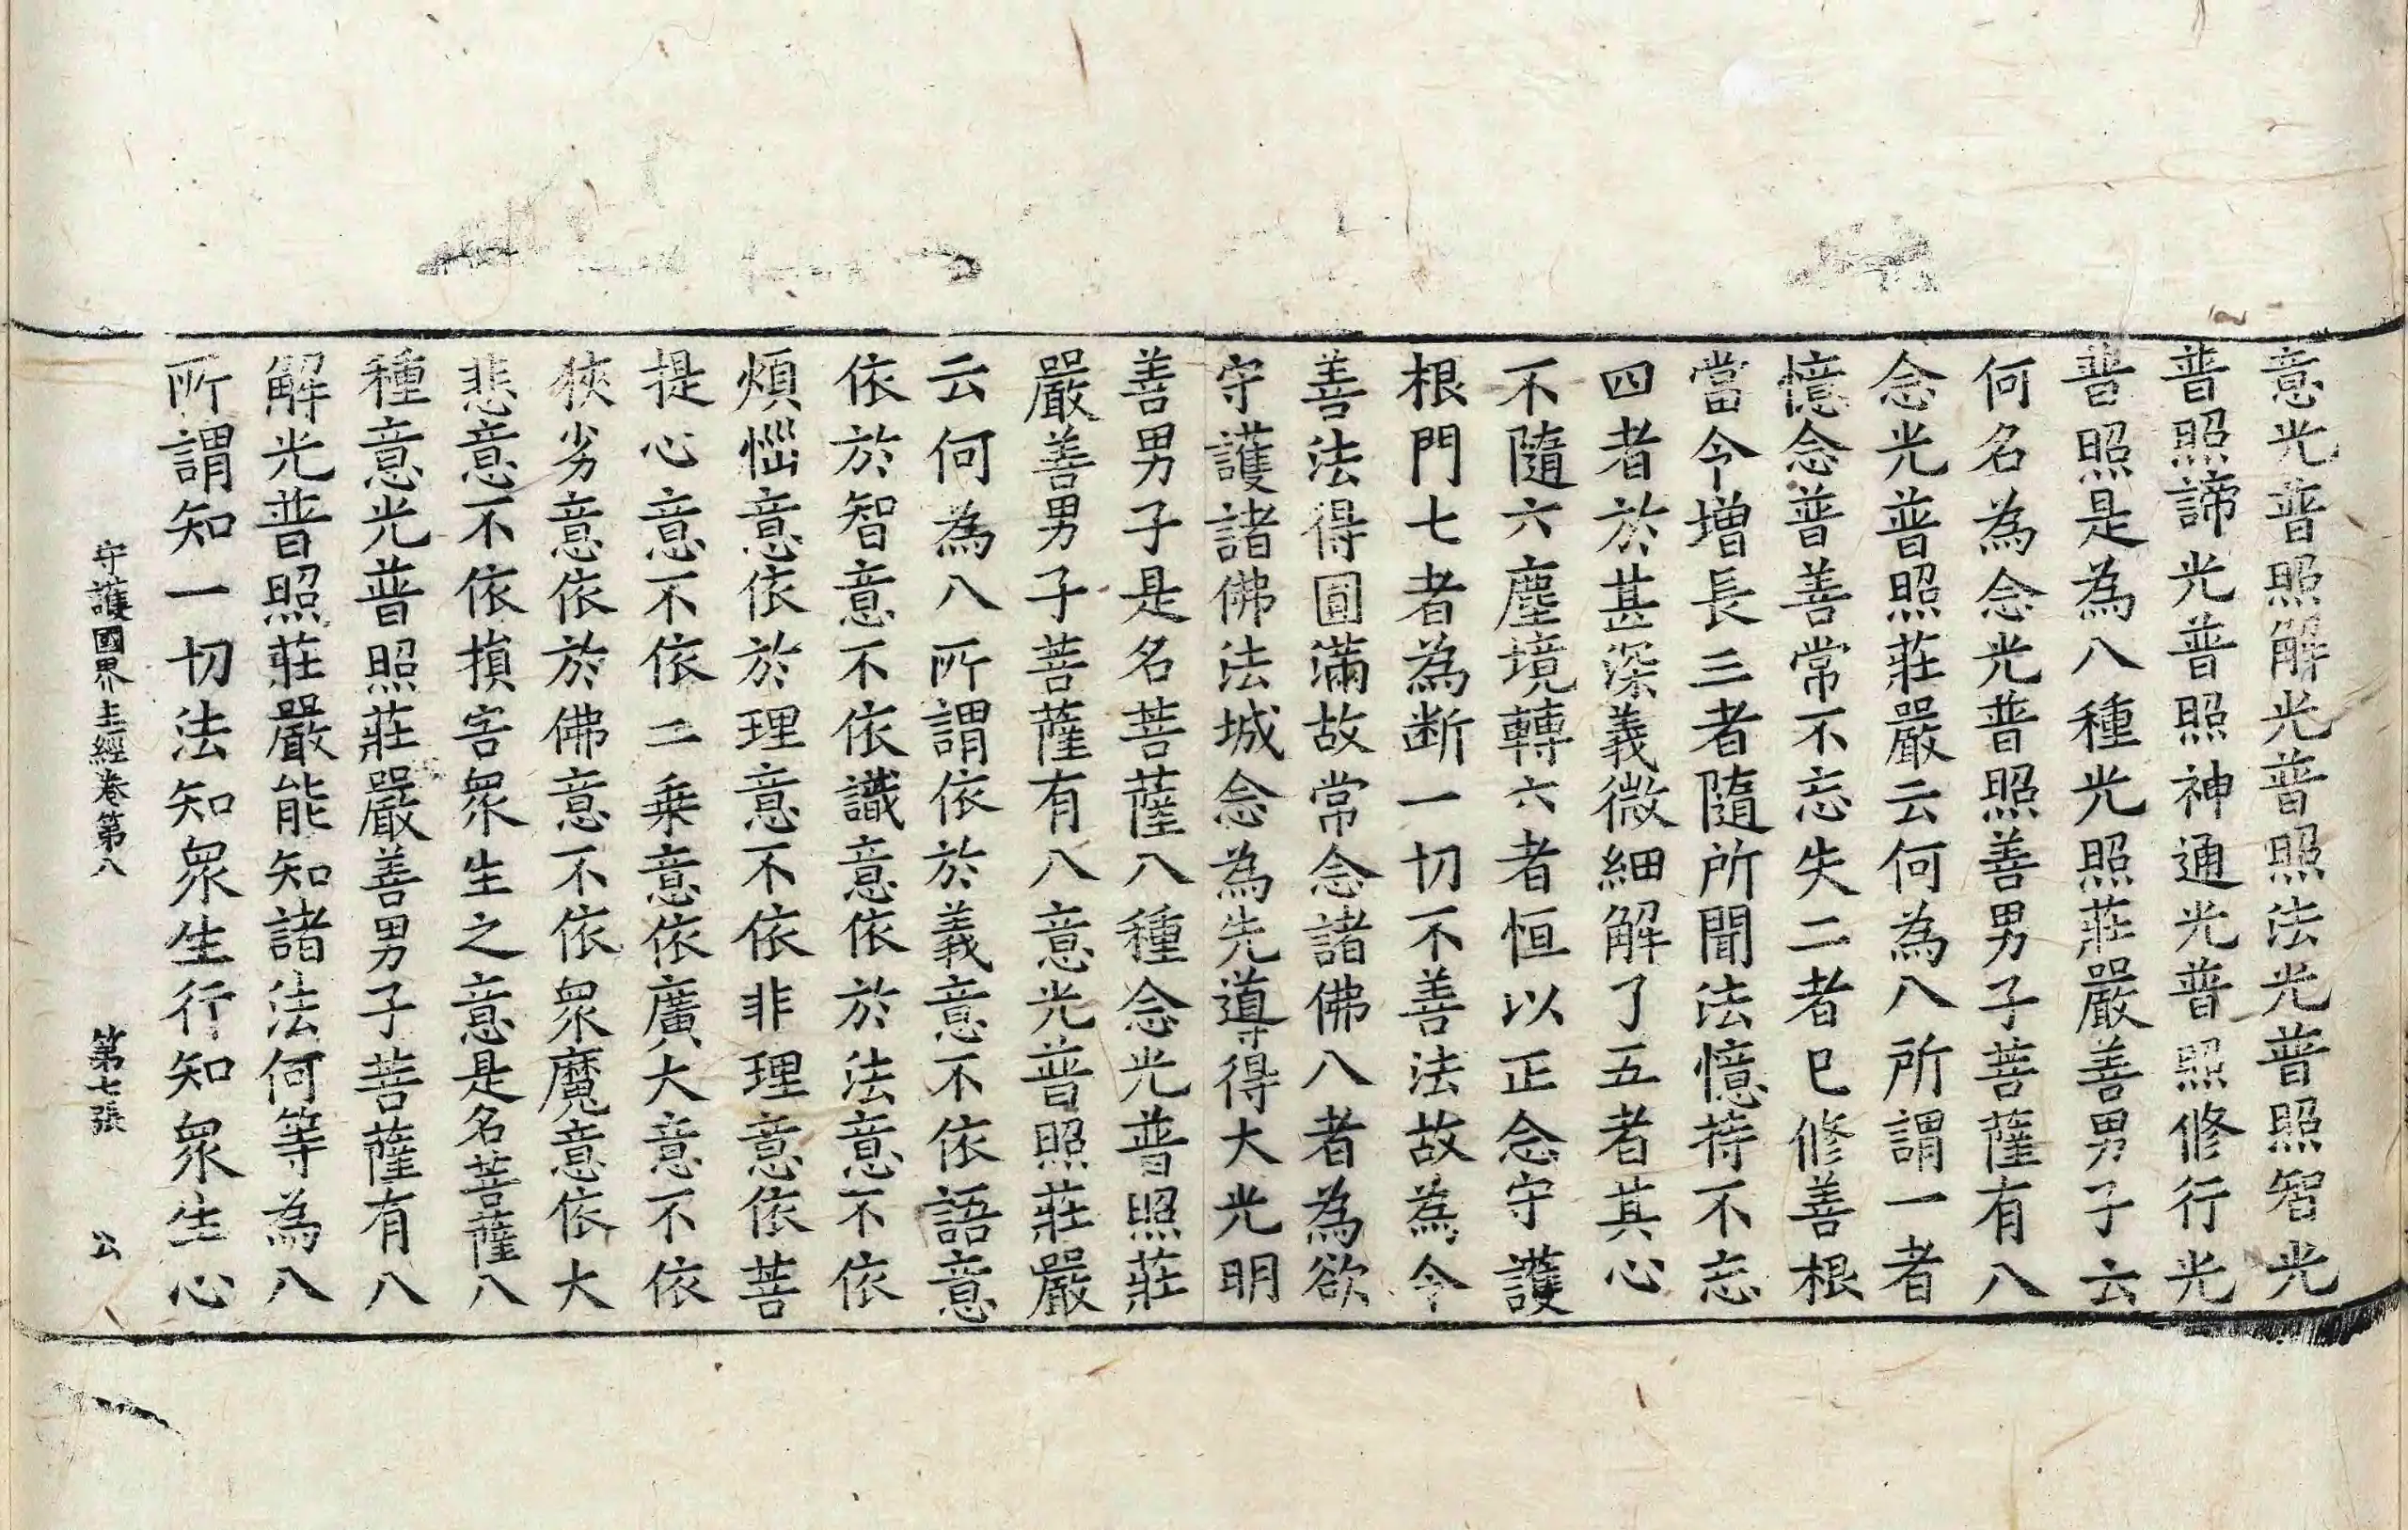 意光普照解光普照法光普照智光
普照諦光普照神通光普照修行光
普照是為八種光照莊嚴善男子云
何名為念光普照善男子菩薩有八
念光普照莊嚴云何為八所謂一者
憶念普善常不忘失二者已修善根
當令增長三者隨所聞法憶持不忘
四者於甚深義微細解了五者其心
不隨六塵境轉六者恒以正念守護
根門七者為断一切不善法故為令
善法得圓滿故常念諸佛八者為欲
守護諸佛法城念為先導得大光明
善男子是名菩薩八種念光普照莊
嚴善男子菩薩有八意光普照莊嚴
云何為八所謂依於義意不依語意
依於智意不依識意依於法意不依
煩惱意依於理意不依非理意依菩
提心意不依二乗意依廣大意不依
狹劣意依於佛意不依眾魔意依大
悲意不依損害眾生之意是名菩薩八
種意光普照莊嚴善男子菩薩有八
解光普照莊嚴能知諸法何等為八
所謂知一切法知眾生行知眾生心
守護國界主經卷第八 第七張 公